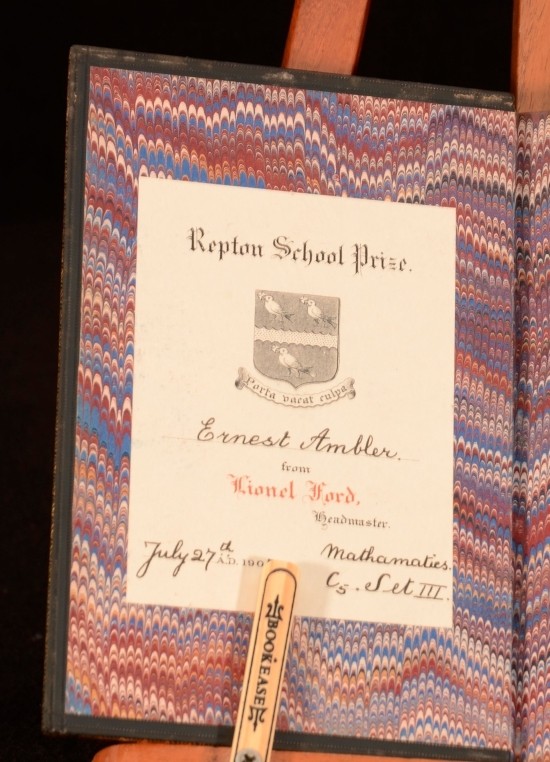 Repton School Prize.
Porta vacat culpa
Ernest Ambler.
from
Lionel Ford,
Headmaster.
July 27th A.D. 190
Mathamatics.
C5. Set III.
BOOKEASE